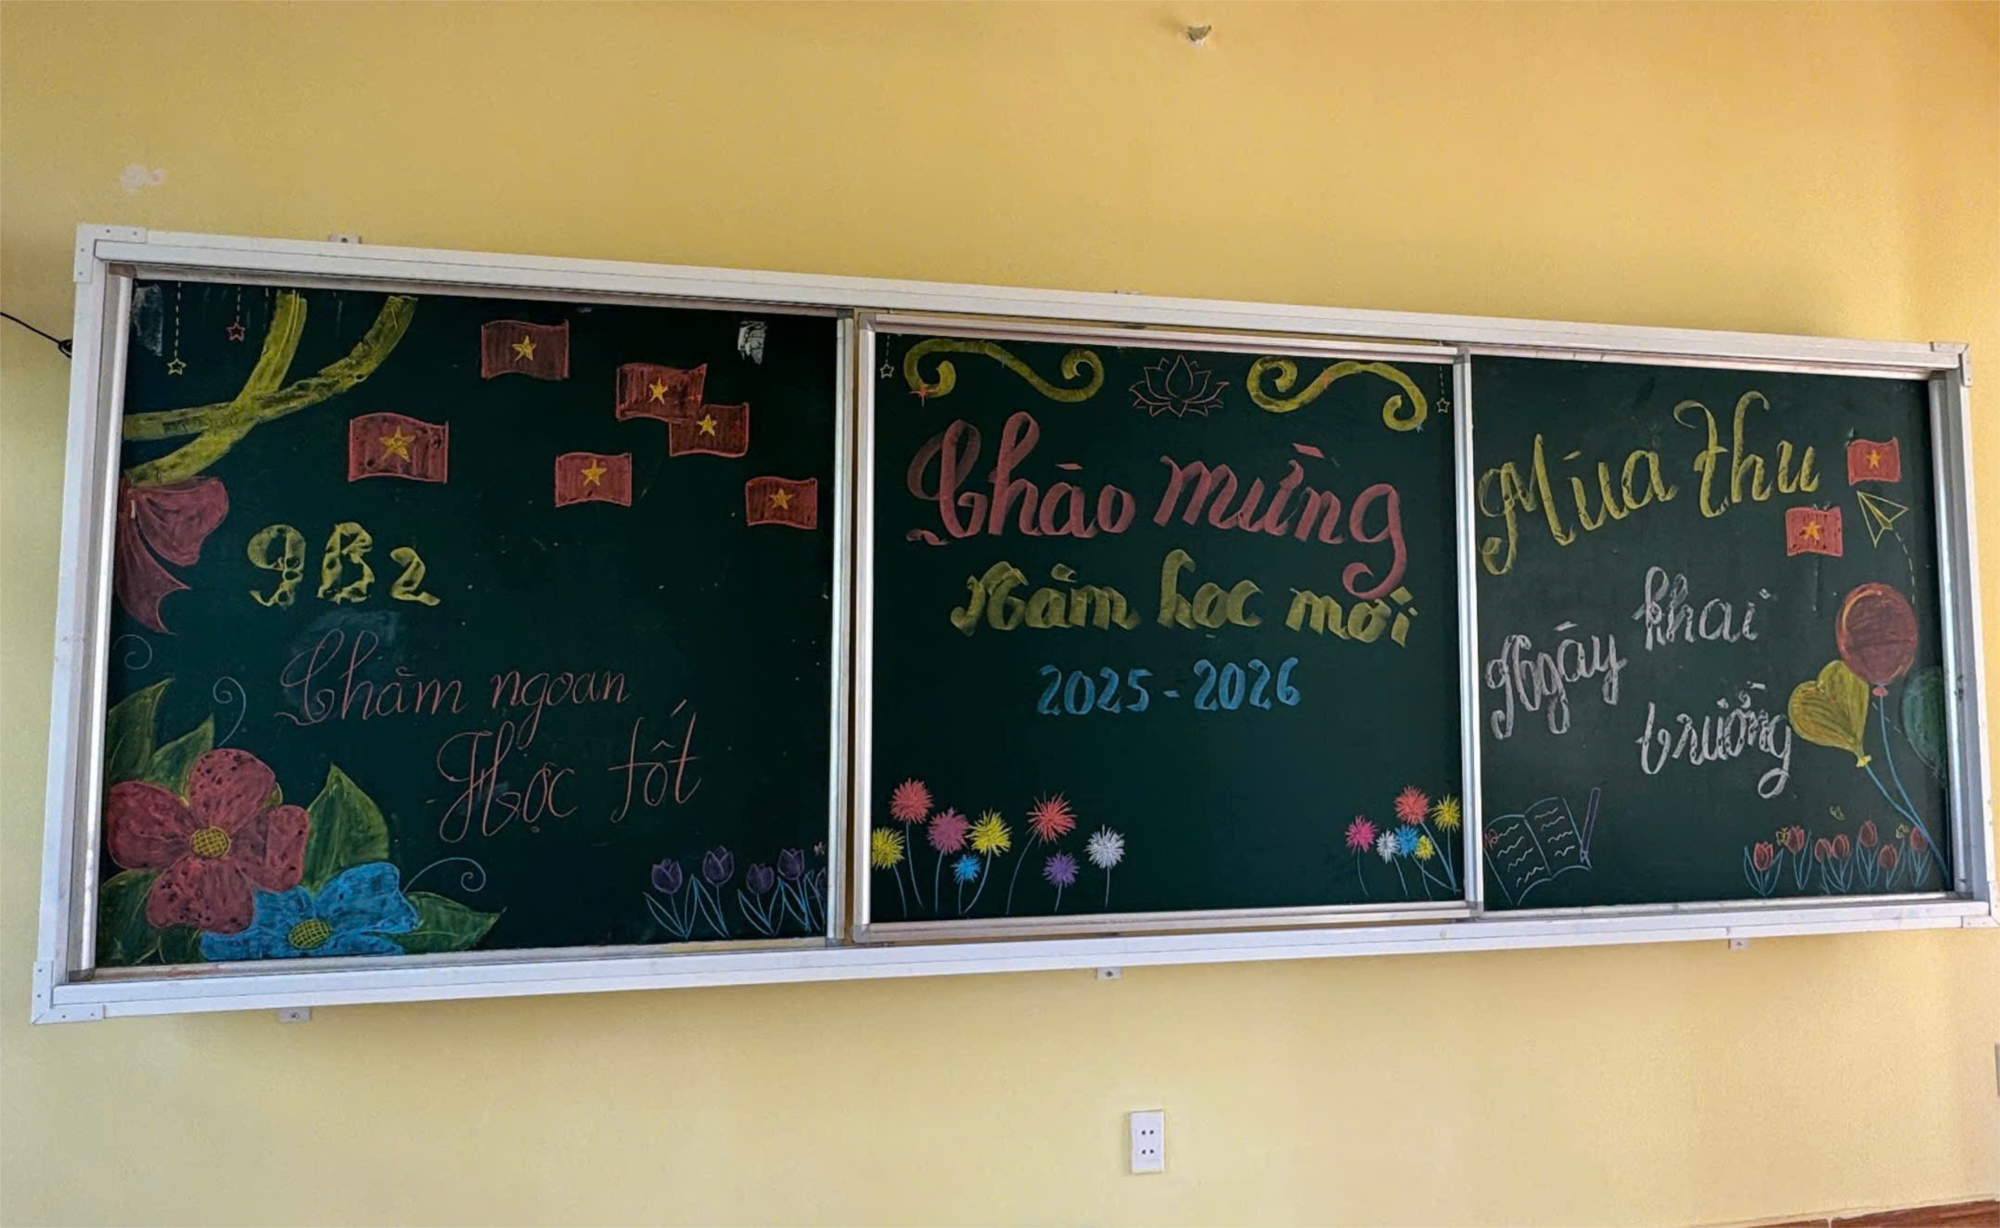 9B2
Chăm ngoan
Học tốt
Chào mừng
Năm học mới
2025-2026
Mùa thu
Ngày khai
trường